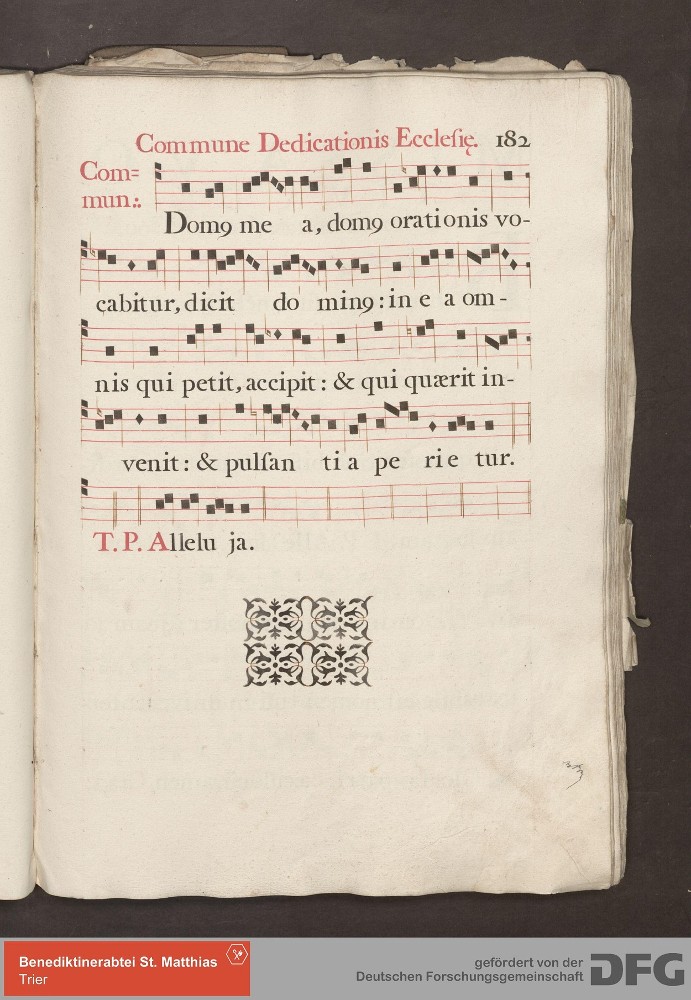 Commune Dedicationis Ecclesię. 182
Com=
mun.:
Domꝯ me a, domꝯ orationis vo-
cabitur, dicit do minꝯ: in e a om-
nis qui petit, accipit: & qui quærit in-
venit: & pulsan ti a pe ri e tur.
T. P. Allelu ja.
Benediktinerabtei St. Matthias
Trier
gefördert von der
Deutschen Forschungsgemeinschaft
DFG